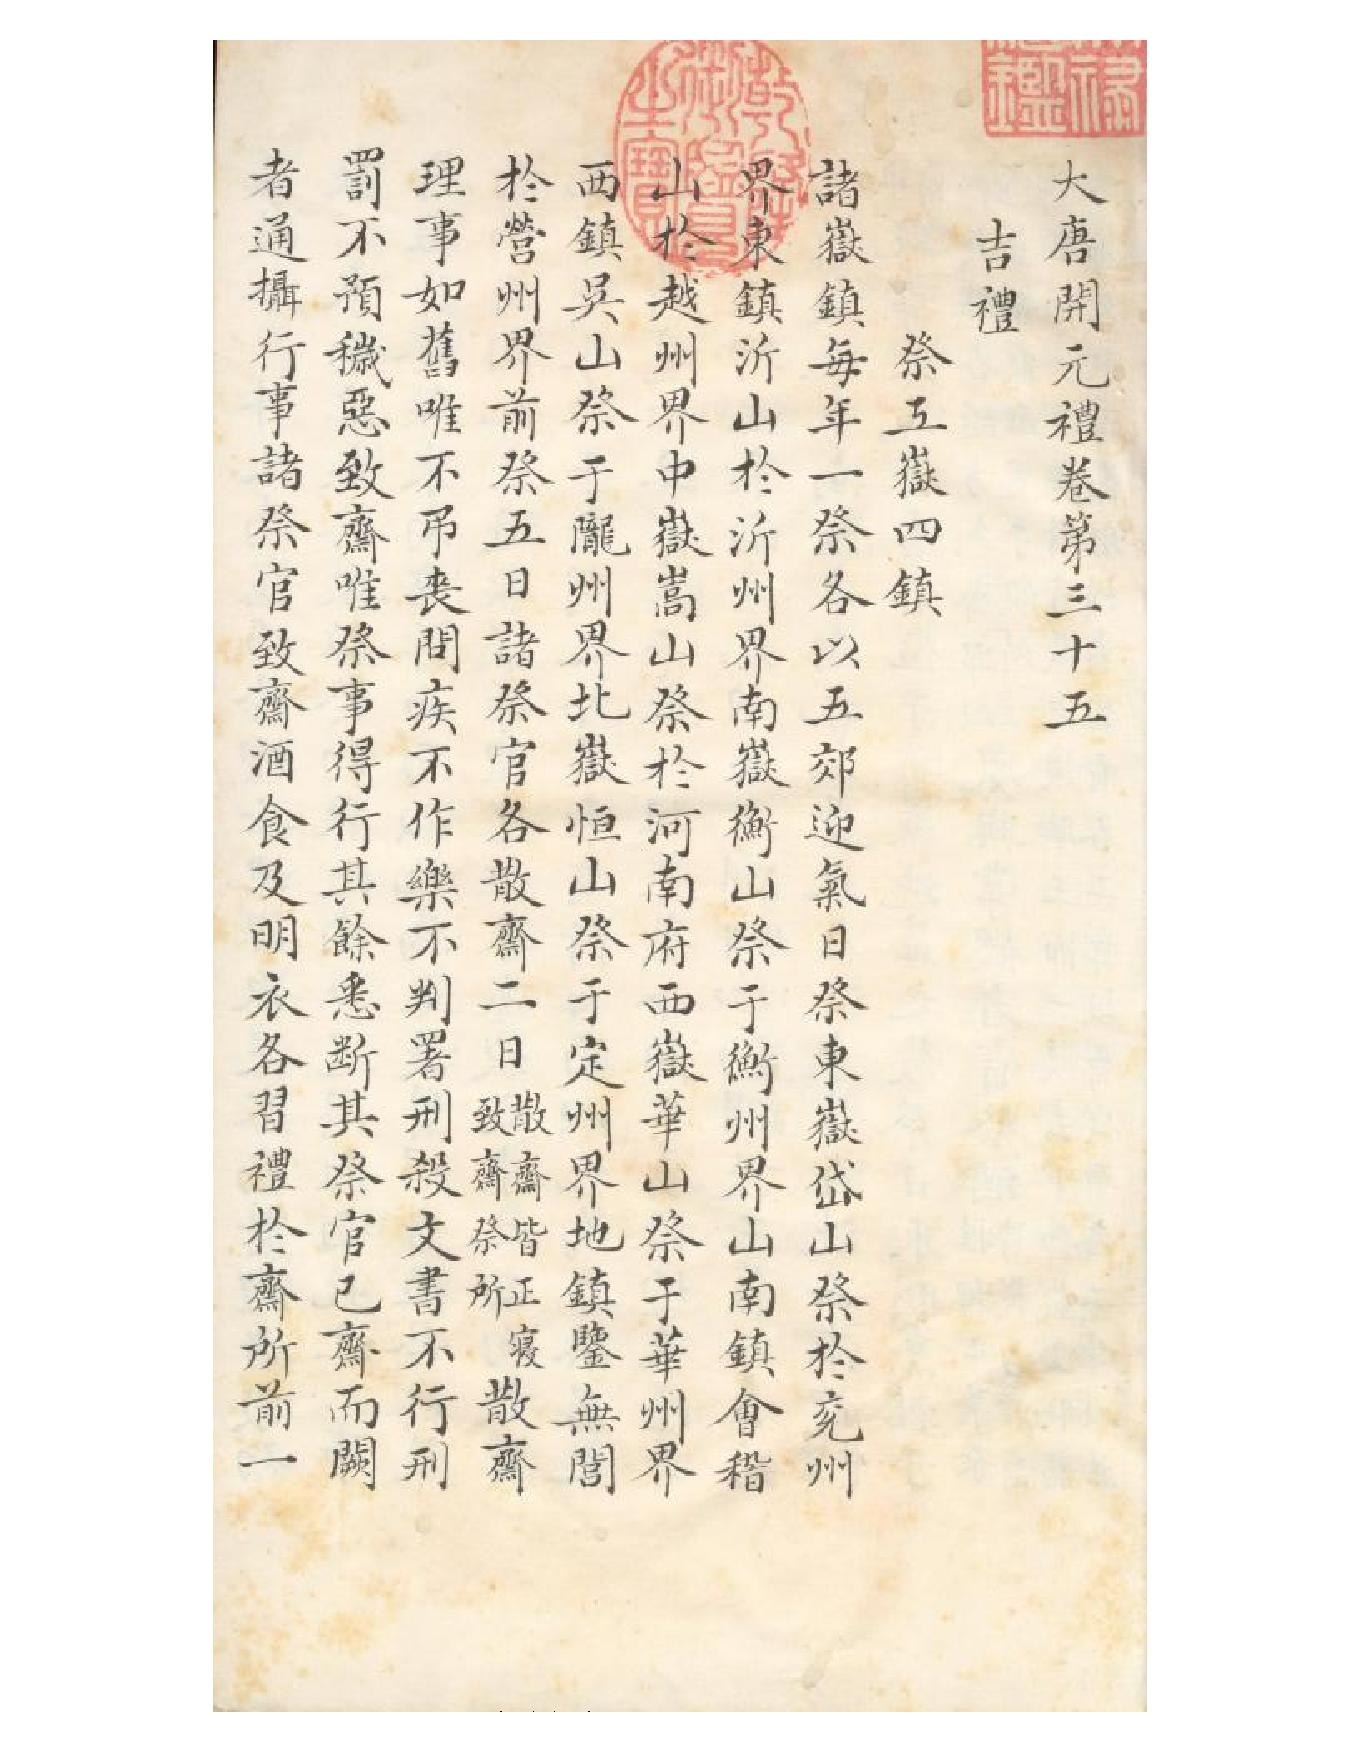 大唐開元禮卷第三十五
吉禮
祭五嶽四鎮
諸嶽鎮每年一祭各以五郊迎氣日祭東嶽岱山祭於兖州
界東鎮沂山於沂州界南嶽衡山祭于衡州界山南鎮會稽
山於越州界中嶽嵩山祭於河南府西嶽華山祭于華州界
西鎮吳山祭于隴州界北嶽恒山祭于定州界地鎮鑒無閭
於營州界前祭五日諸祭官各散齋二日散齋皆正寢致齋祭所散齋
理事如舊唯不吊喪問疾不作樂不判署刑殺文書不行刑
罰不預穢惡致齋唯祭事得行其餘悉断其祭官已齋而闕
者通攝行事諸祭官致齋酒食及明衣各習禮於齋所前一